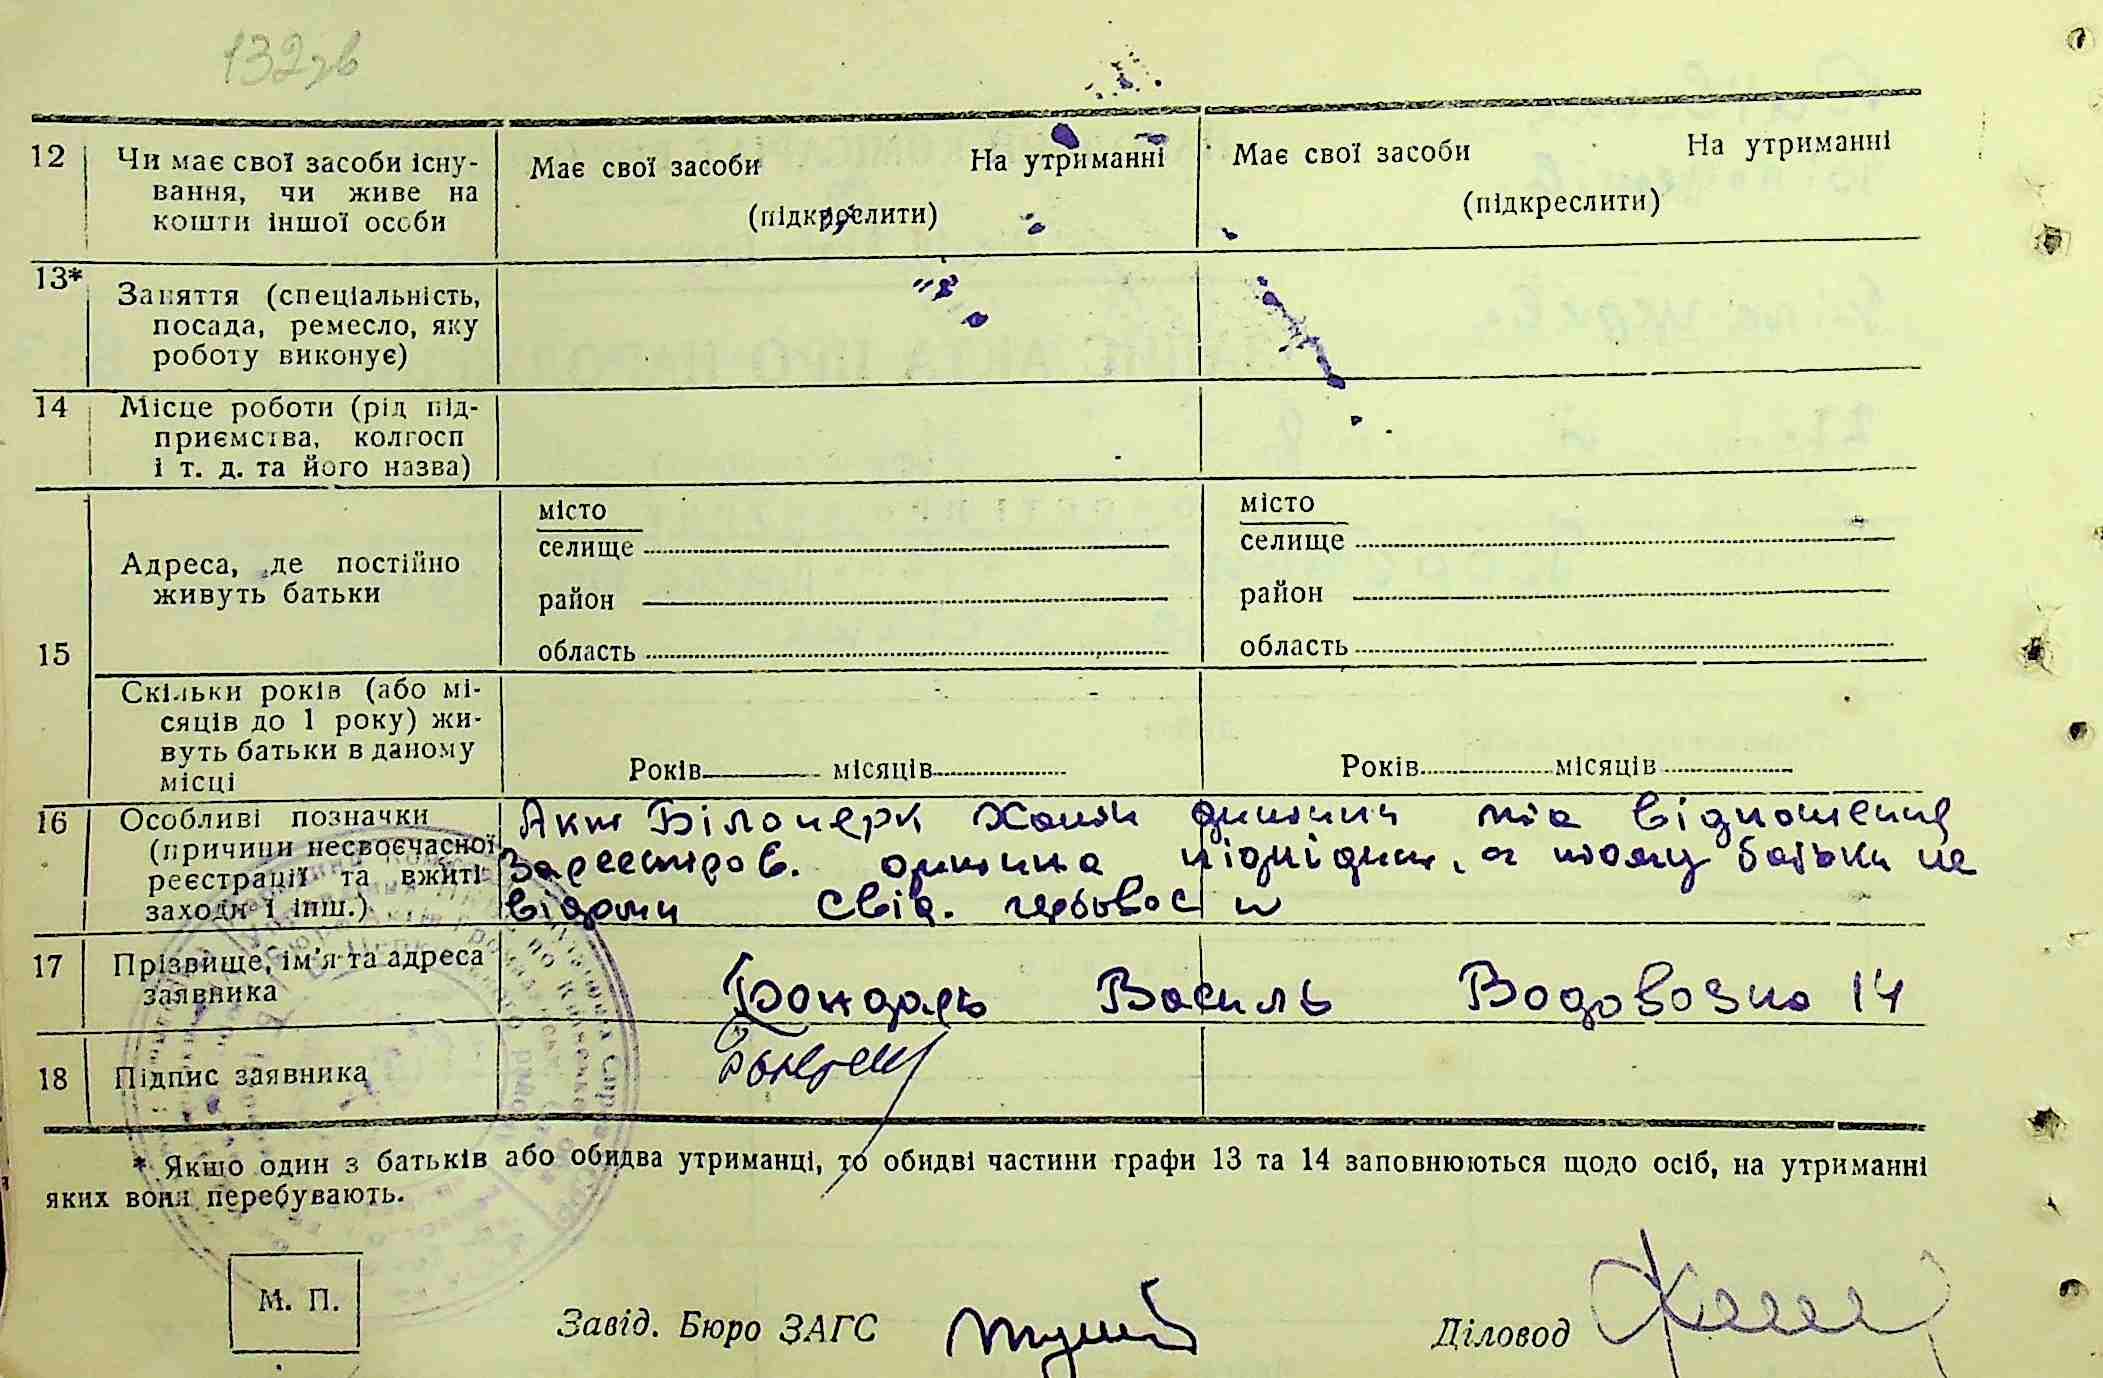 132зв
12 Чи має свої засоби існу- Має свої засоби На утриманні Має свої засоби На утриманні
вання, чи живе на (підкреслити) (підкреслити)
кошти іншої особи
13* Заняття (спеціальність,
посада, ремесло, яку
роботу виконує)
14 Місце роботи (рід під-
приємства, колгосп
і т. д. та його назва)
15 Адреса, де постійно
живуть батьки
місто місто
селище селище
район район
область область
Скільки років (або мі-
сяців до 1 року) жи-
вуть батьки в даному
місці
Років місяців Років місяців
16 Особливі позначки
(причини несвоєчасної
реєстрації та вжиті
заходи і інш.)
Акт Білоцерк дитини та відношення
Зареестров. дитина підкідиш, а тому батьки не
відомі Свід.
17 Прізвище, ім'я та адреса
заявника
Бондарь Василь Водовозна 14
18 Підпис заявника
* Якщо один з батьків або обидва утриманці, то обидві частини графи 13 та 14 заповнюються щодо осіб, на утриманні
яких вони перебувають.
М. П.
Завід. Бюро ЗАГС Діловод